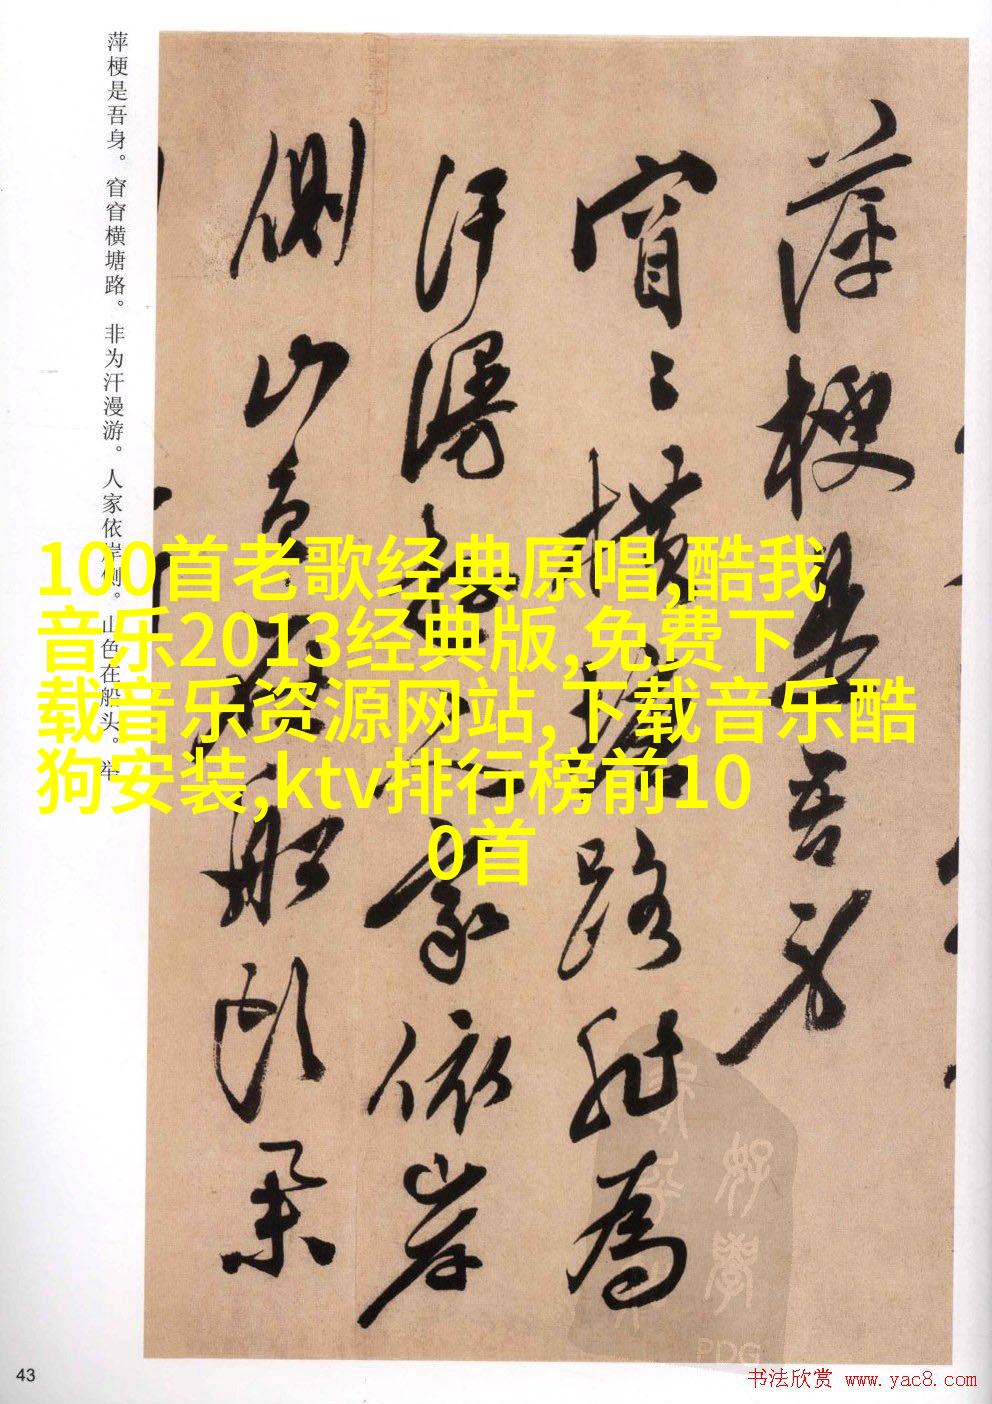 萍梗是吾身
窅〻橫塘路非為
汗漫游人家依岸
側山色在船頭
萍梗是吾身。窅窅横塘路。非为汗漫游。人家依岸侧。山色在船头。举
100首老歌经典原唱,酷我
音乐2013经典版,免费下
载音乐资源网站,下载音乐酷
狗安装,ktv排行榜前10
0首
PDG
43
书法欣赏 www.yac8.com